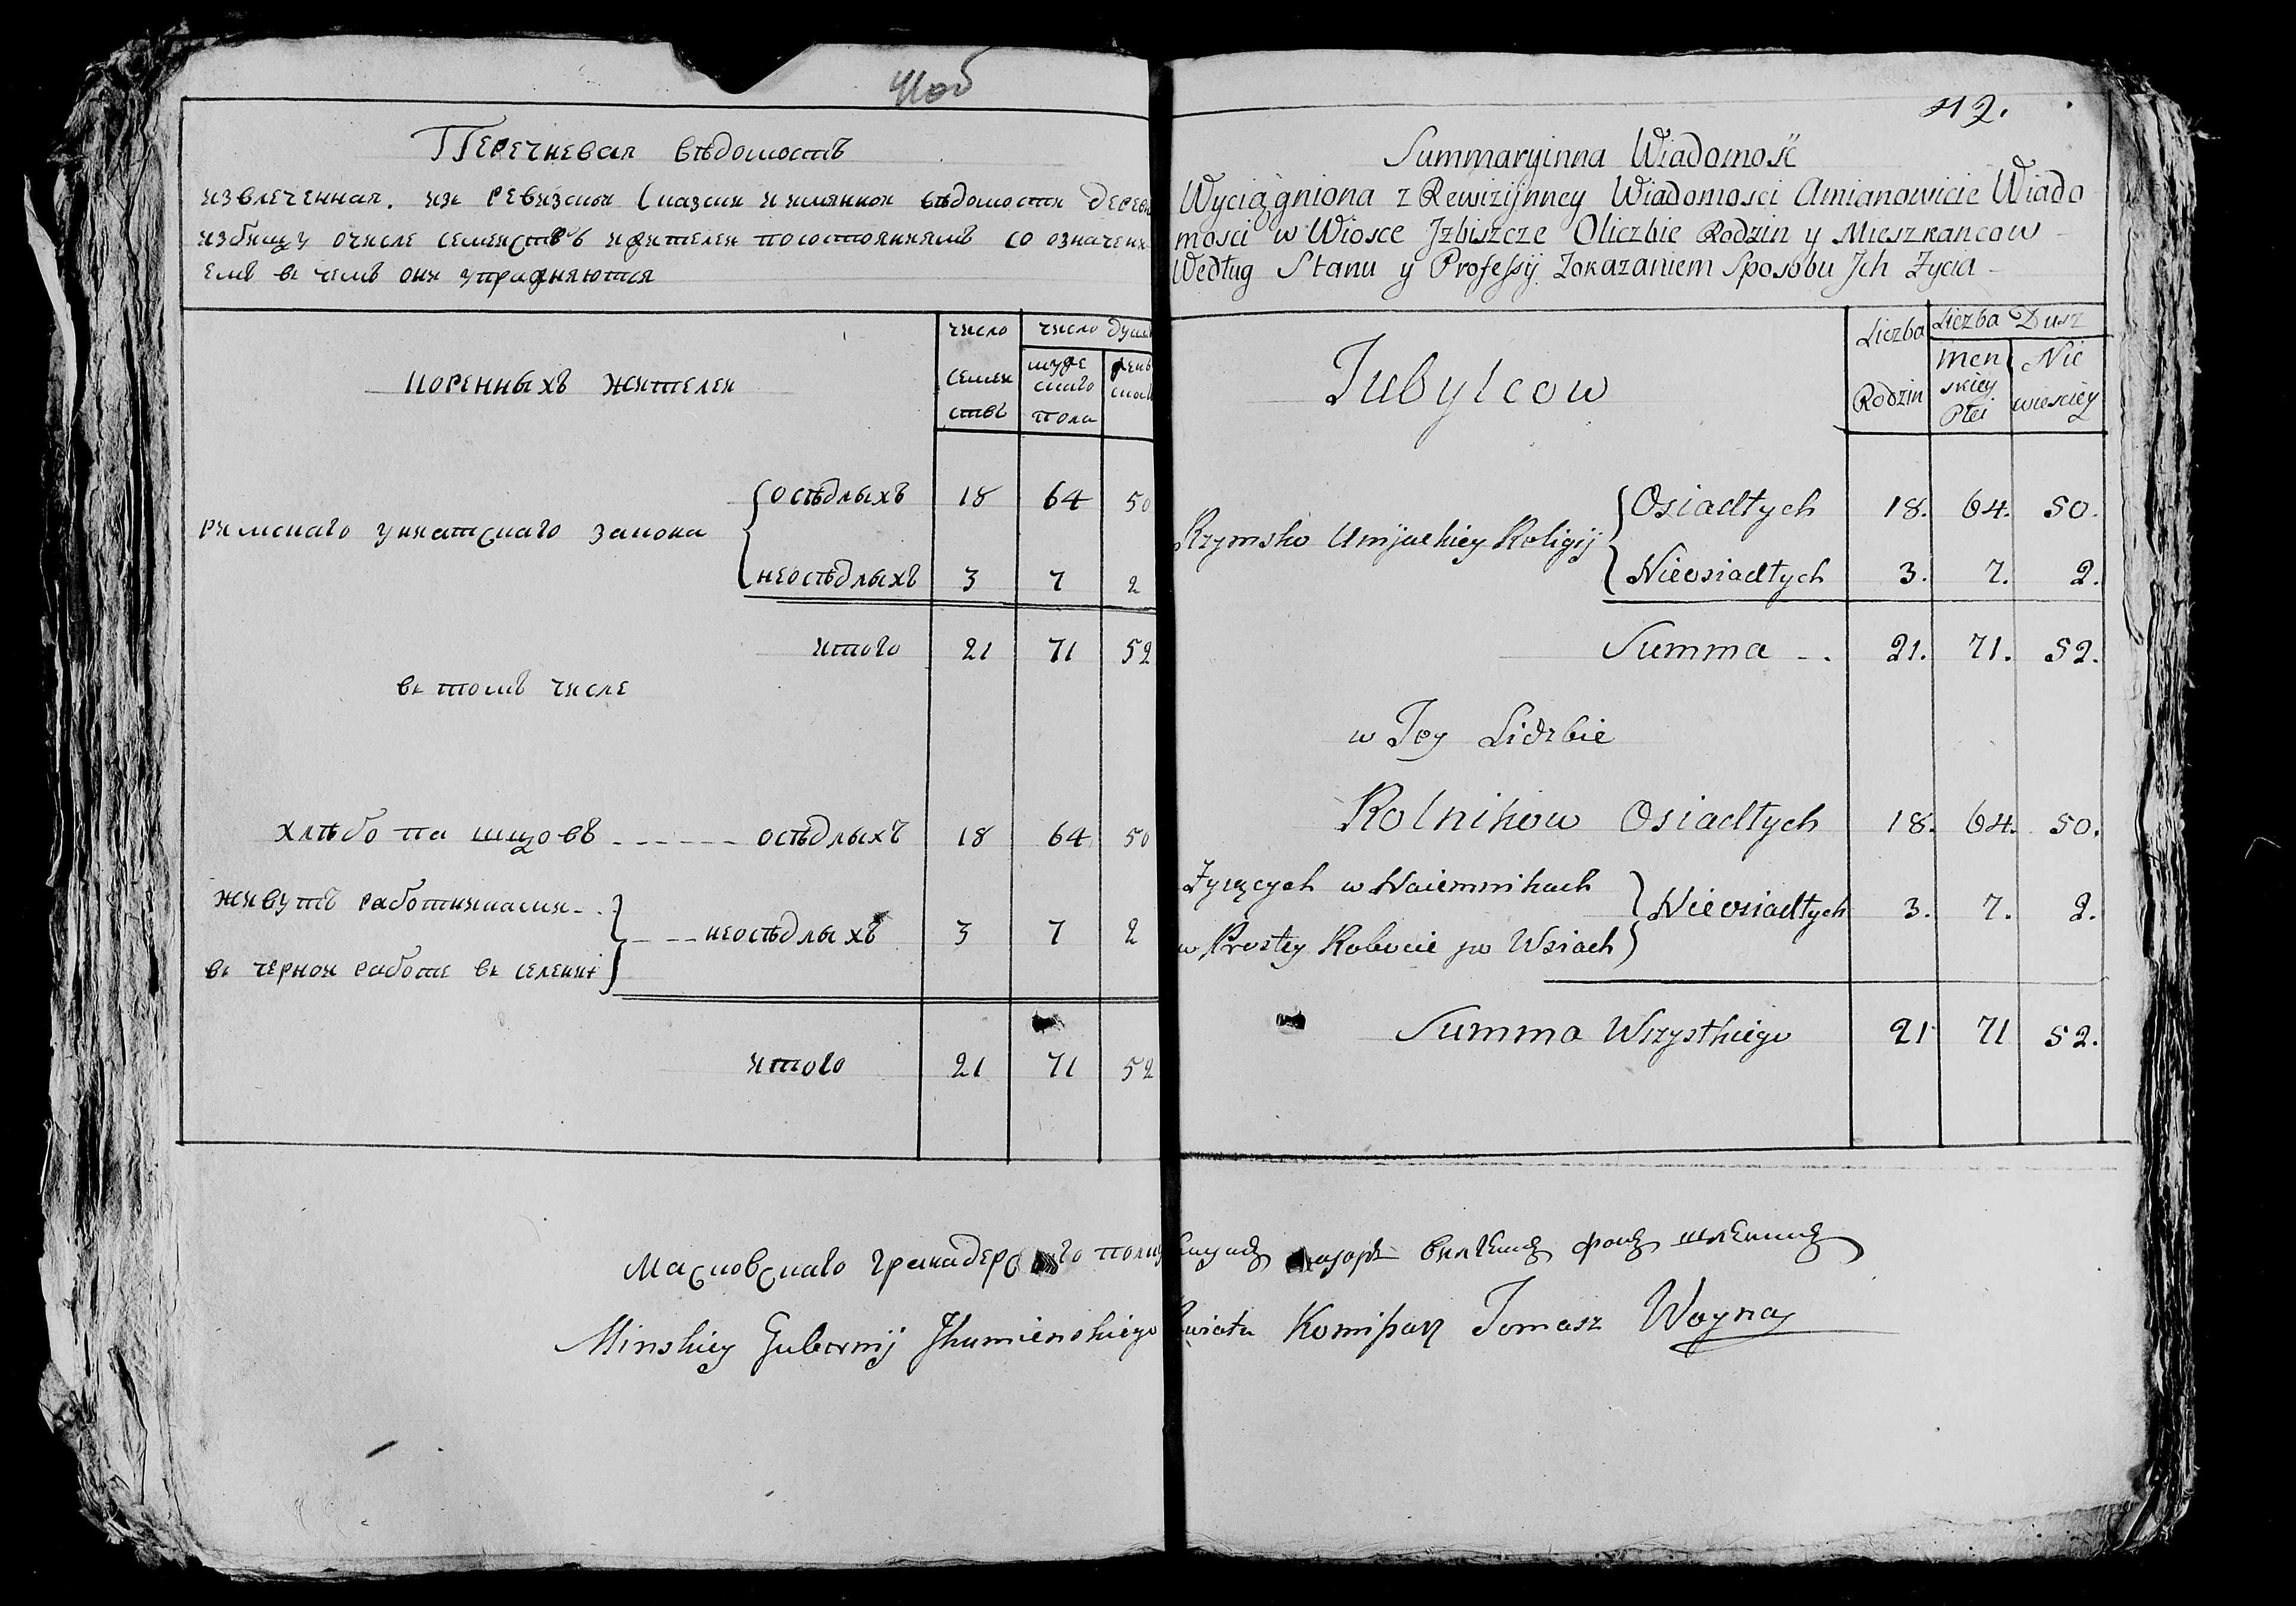 41об
Перечневая вѣдомость
извлеченная. изъ ревизскои сказки и имяннои вѣдомости дерев
избищу о числе семействъ и жителеи по состояниямъ со означени
емъ въ чемъ они упражняются
число
число душъ
коренныхъ жителеи
семеи
ствъ
муже
скаго
пола
женъ
скаго
римскаго униатскаго закона
осѣдлыхъ 18 64 50
неосѣдлыхъ 3 7 2
итого 21 71 52
въ томъ числе
хлѣбопашцовъ осѣдлыхъ 18 64 50
живутъ работниками
неосѣдлыхъ 3 7 2
въ чернои работе въ селении
итого 21 71 52
42.
Summaryinna Wiadomość
Wyciągniona z Rewizijnney Wiadomosci Amianowicie Wiado
mosci w Wiosce Jzbiszcze Oliczbie Rodzin y Mieszkancow
Według Stanu y Professij Zokazaniem Sposobu Jch Zycia
Tubylcow
Liczba
Rodzin
Liczba Dusz
men
skiey
Płci
Nie
wiesciey
Rzymsko Unijackiey Religij
Osiadłych 18. 64. 50.
Nieosiadłych 3. 7. 2.
Summa 21. 71. 52.
w Tey Lidzbie
Rolnikow Osiadłych 18. 64. 50.
Zyiących w Naiemnikach
Nieosiadłych 3. 7. 2.
w Prostey Robocie po Wsiach
Summa Wszystkiego 21 71 52.
Московскаго гранадерскаго полку
Minskiey Gubernij Jhumienskiego Powiatu Komissarz Tomasz Woyna